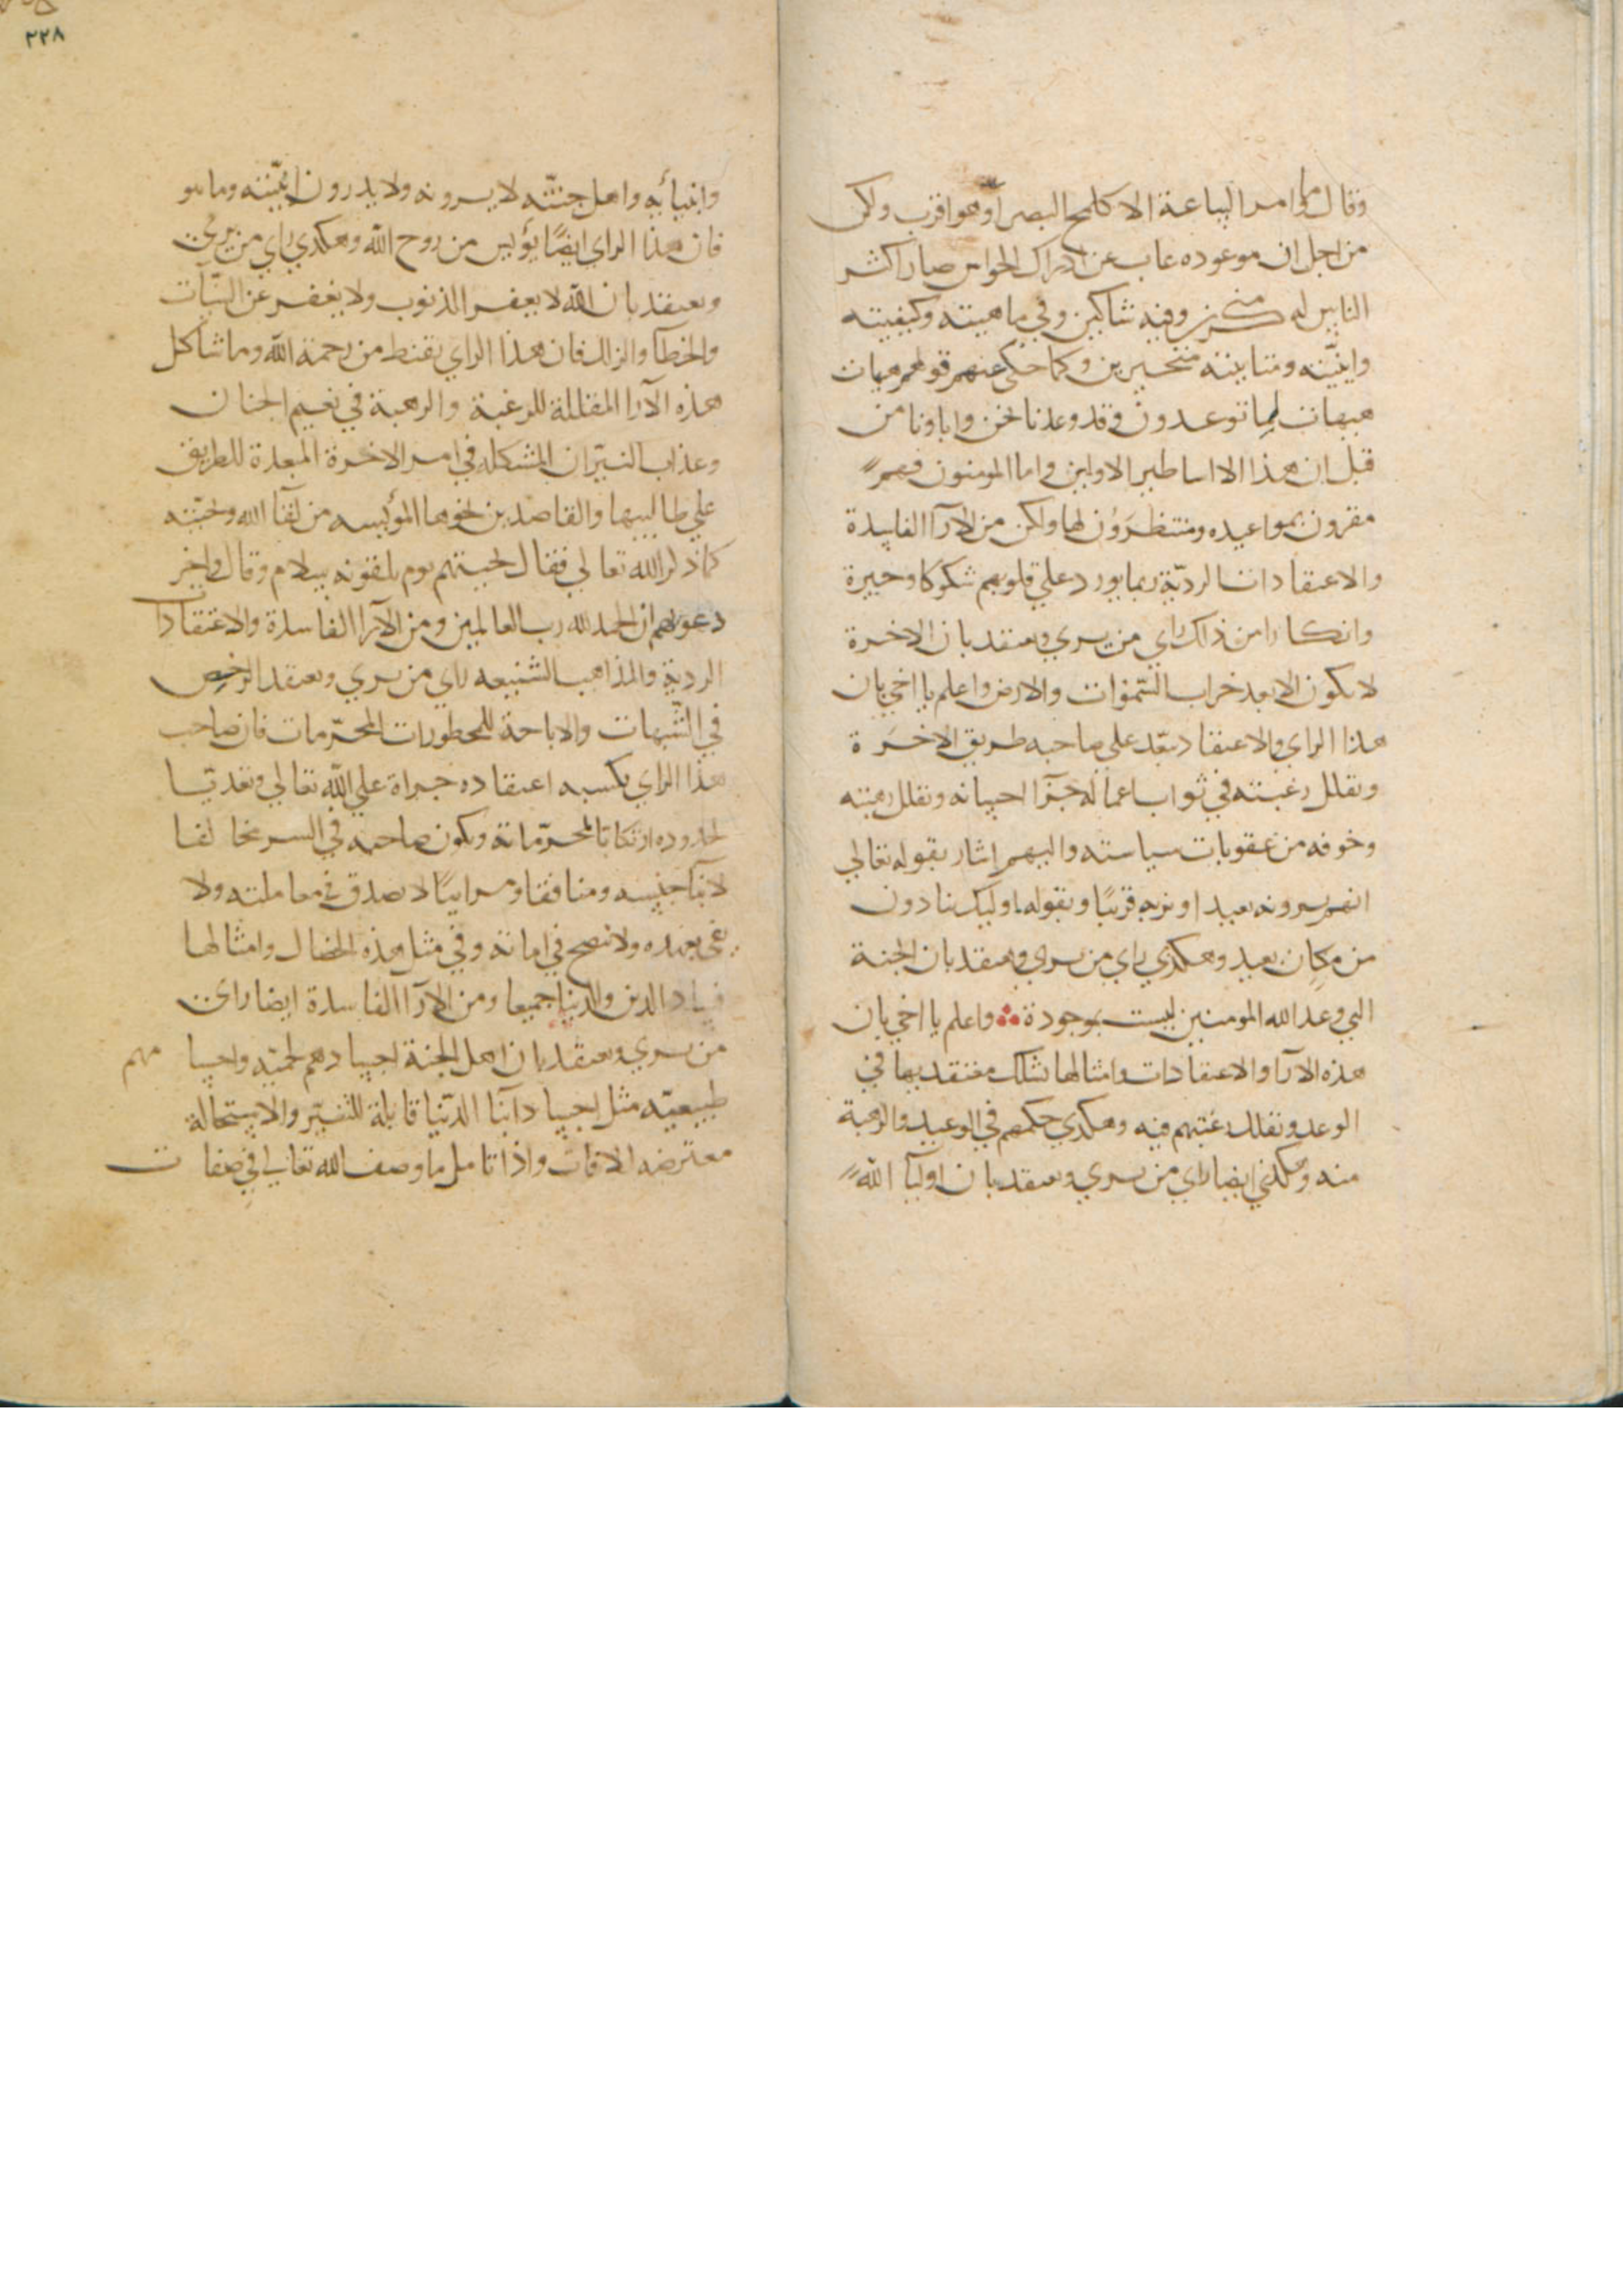 وقال وما امر الساعة الا كلمح البصر او هو اقرب ولكن
من اجل ان موعوده غاب عن ادراك الحواس صار اكثر
الناس له منكرين وفيه شاكين وفي ماهيته وكيفيته
واينيته متحيرين وكما حكي عنهم قولهم هيهات
هيهات لما توعدون وقد وعدنا نحن واباونا من
قبل ان هذا الا اساطير الاولين واما المومنون فهم
مقرون بمواعيده ومنتظرون لها ولكن من الآرا الفاسدة
والاعتقادات الرديّة ربما يورد علي قلوبهم شكوكا وحيرة
وانكارا من ذلك راي من يري ويعتقد بان الاخرة
لا يكون الا بعد خراب السّموات والارض واعلم يا اخي بان
هذا الراي والاعتقاد يبعّد علي صاحبه طريق الاخرة
ويقلل رغبته في ثواب اعماله جزآ احسانه ويقلل رهبته
وخوفه من عقوبات سياسته واليهم اشار بقوله تعالي
انهم يرونه بعيدا ونريه قريبًا وبقوله اوليك ينادون
من مكان بعيد وهكدي راي من يري ويعتقد بان الجنة
التي وعد الله المومنين ليست بموجودة ؞ واعلم يا اخي بان
هذه الآرا والاعتقادات وامثالها تشكك معتقديها في
الوعد وتقلل رغبتهم فيه وهكدي حكمهم في الوعيد والرهبة
منه وهكدي ايضا راي من يري ويعتقد بان اوليآ الله
وانبيائه واهل جنتّه لا يرونه ولا يدرون اينيّته وما هو
فان هذا الراي ايضًا يؤيس من روح الله وهكدي راي من يري
ويعتقد بان الله لا يغفر الذنوب ولا يغفر عن السيّات
والخطآ والزلل فان هذا الراي يقنط من رحمة الله وما شاكل
هذه الآرا المقللة للرغبة والرهبة في نعيم الجنان
وعذاب النيّران المشككله في امر الاخرة المبعدة للطريق
علي طالبيها والقاصدين نحوها المؤيسه من لقآ الله وتحيّته
كما ذكر الله تعالي فقال تحيتهم يوم يلقونه سلام وقال واخر
دعويهم ان الحمد لله رب العالمين ومن الآرا الفاسدة والاعتقادات
الرديّة والمذاهب الشنيعه راي من يري ويعتقد الرخص
في الشّبهات والاباحة للمحظورات المحرّمات فان صاحب
هذا الراي يكسبه اعتقاده جراة علي الله تعالي وتعديّا
لحدوده ارتكابا لمحرّماته ويكون صاحبه في السر مخالفا
لابنآ جنسه ومنافقا ومرايّا لا يصدق في معاملته ولا
يفي بعهده ولا ينصح في امانة وفي مثل هذه الخصال وامثالها
فساد الدين والدنيا جميعا ومن الآرآ الفاسدة ايضا راي
من يري ويعتقد بان اهل الجنة اجسادهم لحميّه واجسامهم
طبيعيّه مثل اجساد ابنآ الدّنيا قابلة للتغيّر والاستحالة
معترضه الافات واذا تامل ما وصف الله تعالي في صفات
٢٢٨